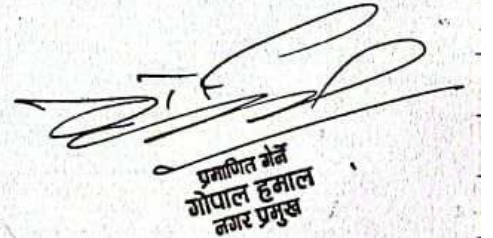 प्रमाणित गर्ने
गोपाल हमाल
नगर प्रमुख